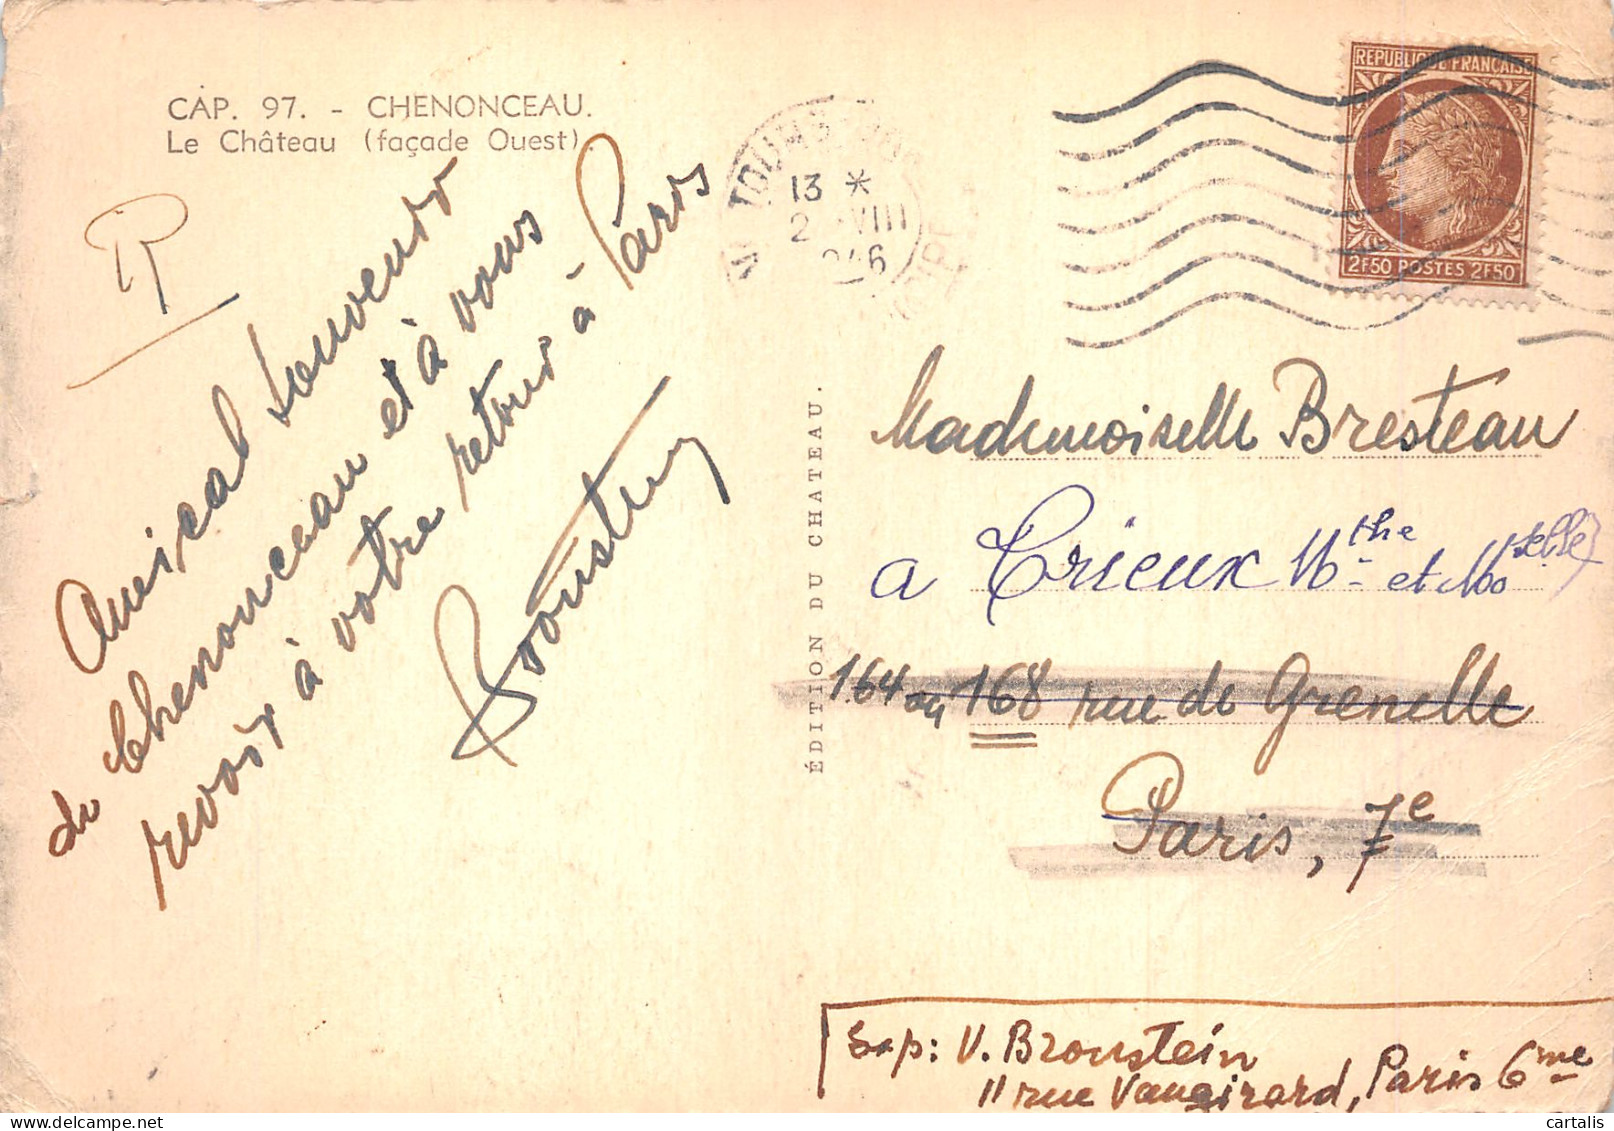 CAP. 97. - CHENONCEAU.
Le Château (façade Ouest).
Amical souvenir
de Chenonceau et à vous
revoir à votre retour à Paris
Bronstein
ÉDITION DU CHATEAU.
13 *
2 VIII
REPUBLIQUE FRANÇAISE
2F50 POSTES 2F50
Mademoiselle Bresteau
a Trieux Mthe et Moselle
164 ou 168 rue de Grenelle
Paris, 7e
Exp: V. Bronstein
11 rue Vaugirard, Paris 6me
© cartalis